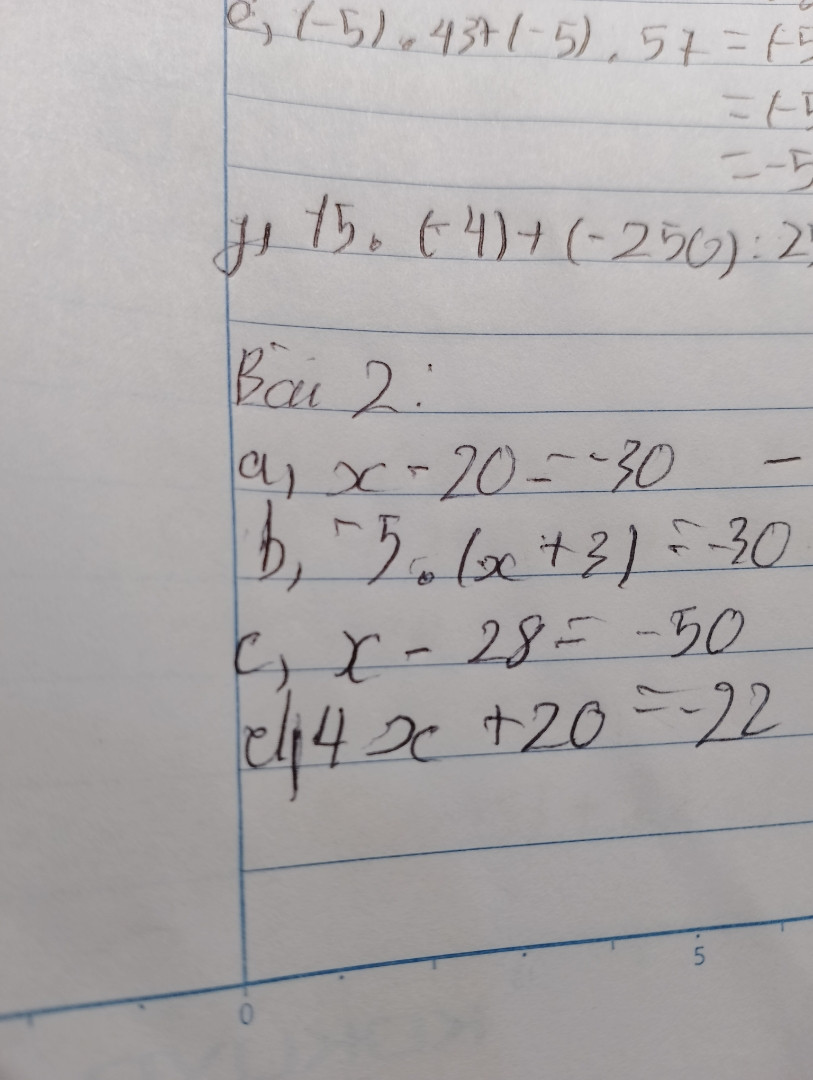 e, (-5) . 43 + (-5) . 57 = (-5
= (-5
= -5
y, 15 . (-4) + (-250) : 25
Bài 2:
a, x - 20 = -30 -
b, -5 . (x + 3) = -30
c, x - 28 = -50
d, 4 x + 20 = -22
0 5